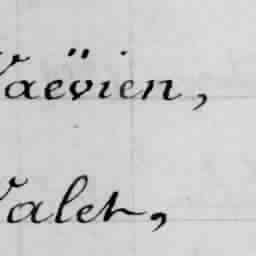 Vaëvien,
Valet,